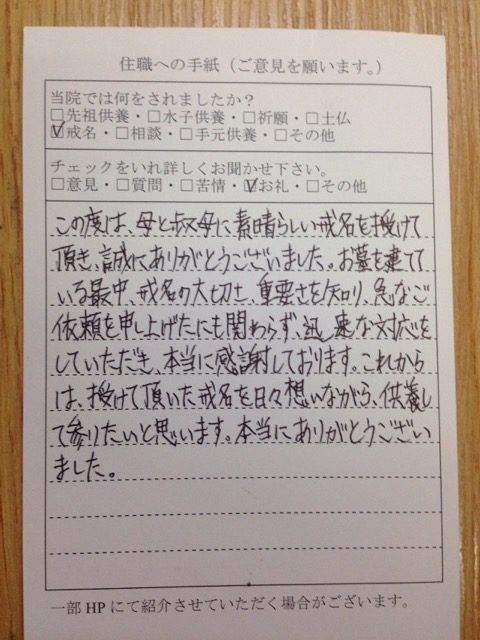 住職への手紙（ご意見を願います。）
当院では何をされましたか？
□先祖供養・□水子供養・□祈願・□土仏
☑戒名・□相談・□手元供養・□その他
チェックをいれ詳しくお聞かせ下さい。
□意見・□質問・□苦情・☑お礼・□その他
この度は、母と叔母に素晴らしい戒名を授けて
頂き、誠にありがとうございました。お墓を建てて
いる最中、戒名の大切さ、重要さを知り、急なご
依頼を申し上げたにも関わらず、迅速な対応を
していただき、本当に感謝しております。これから
は、授けて頂いた戒名を日々想いながら、供養し
て参りたいと思います。本当にありがとうござい
ました。
一部 HP にて紹介させていただく場合がございます。